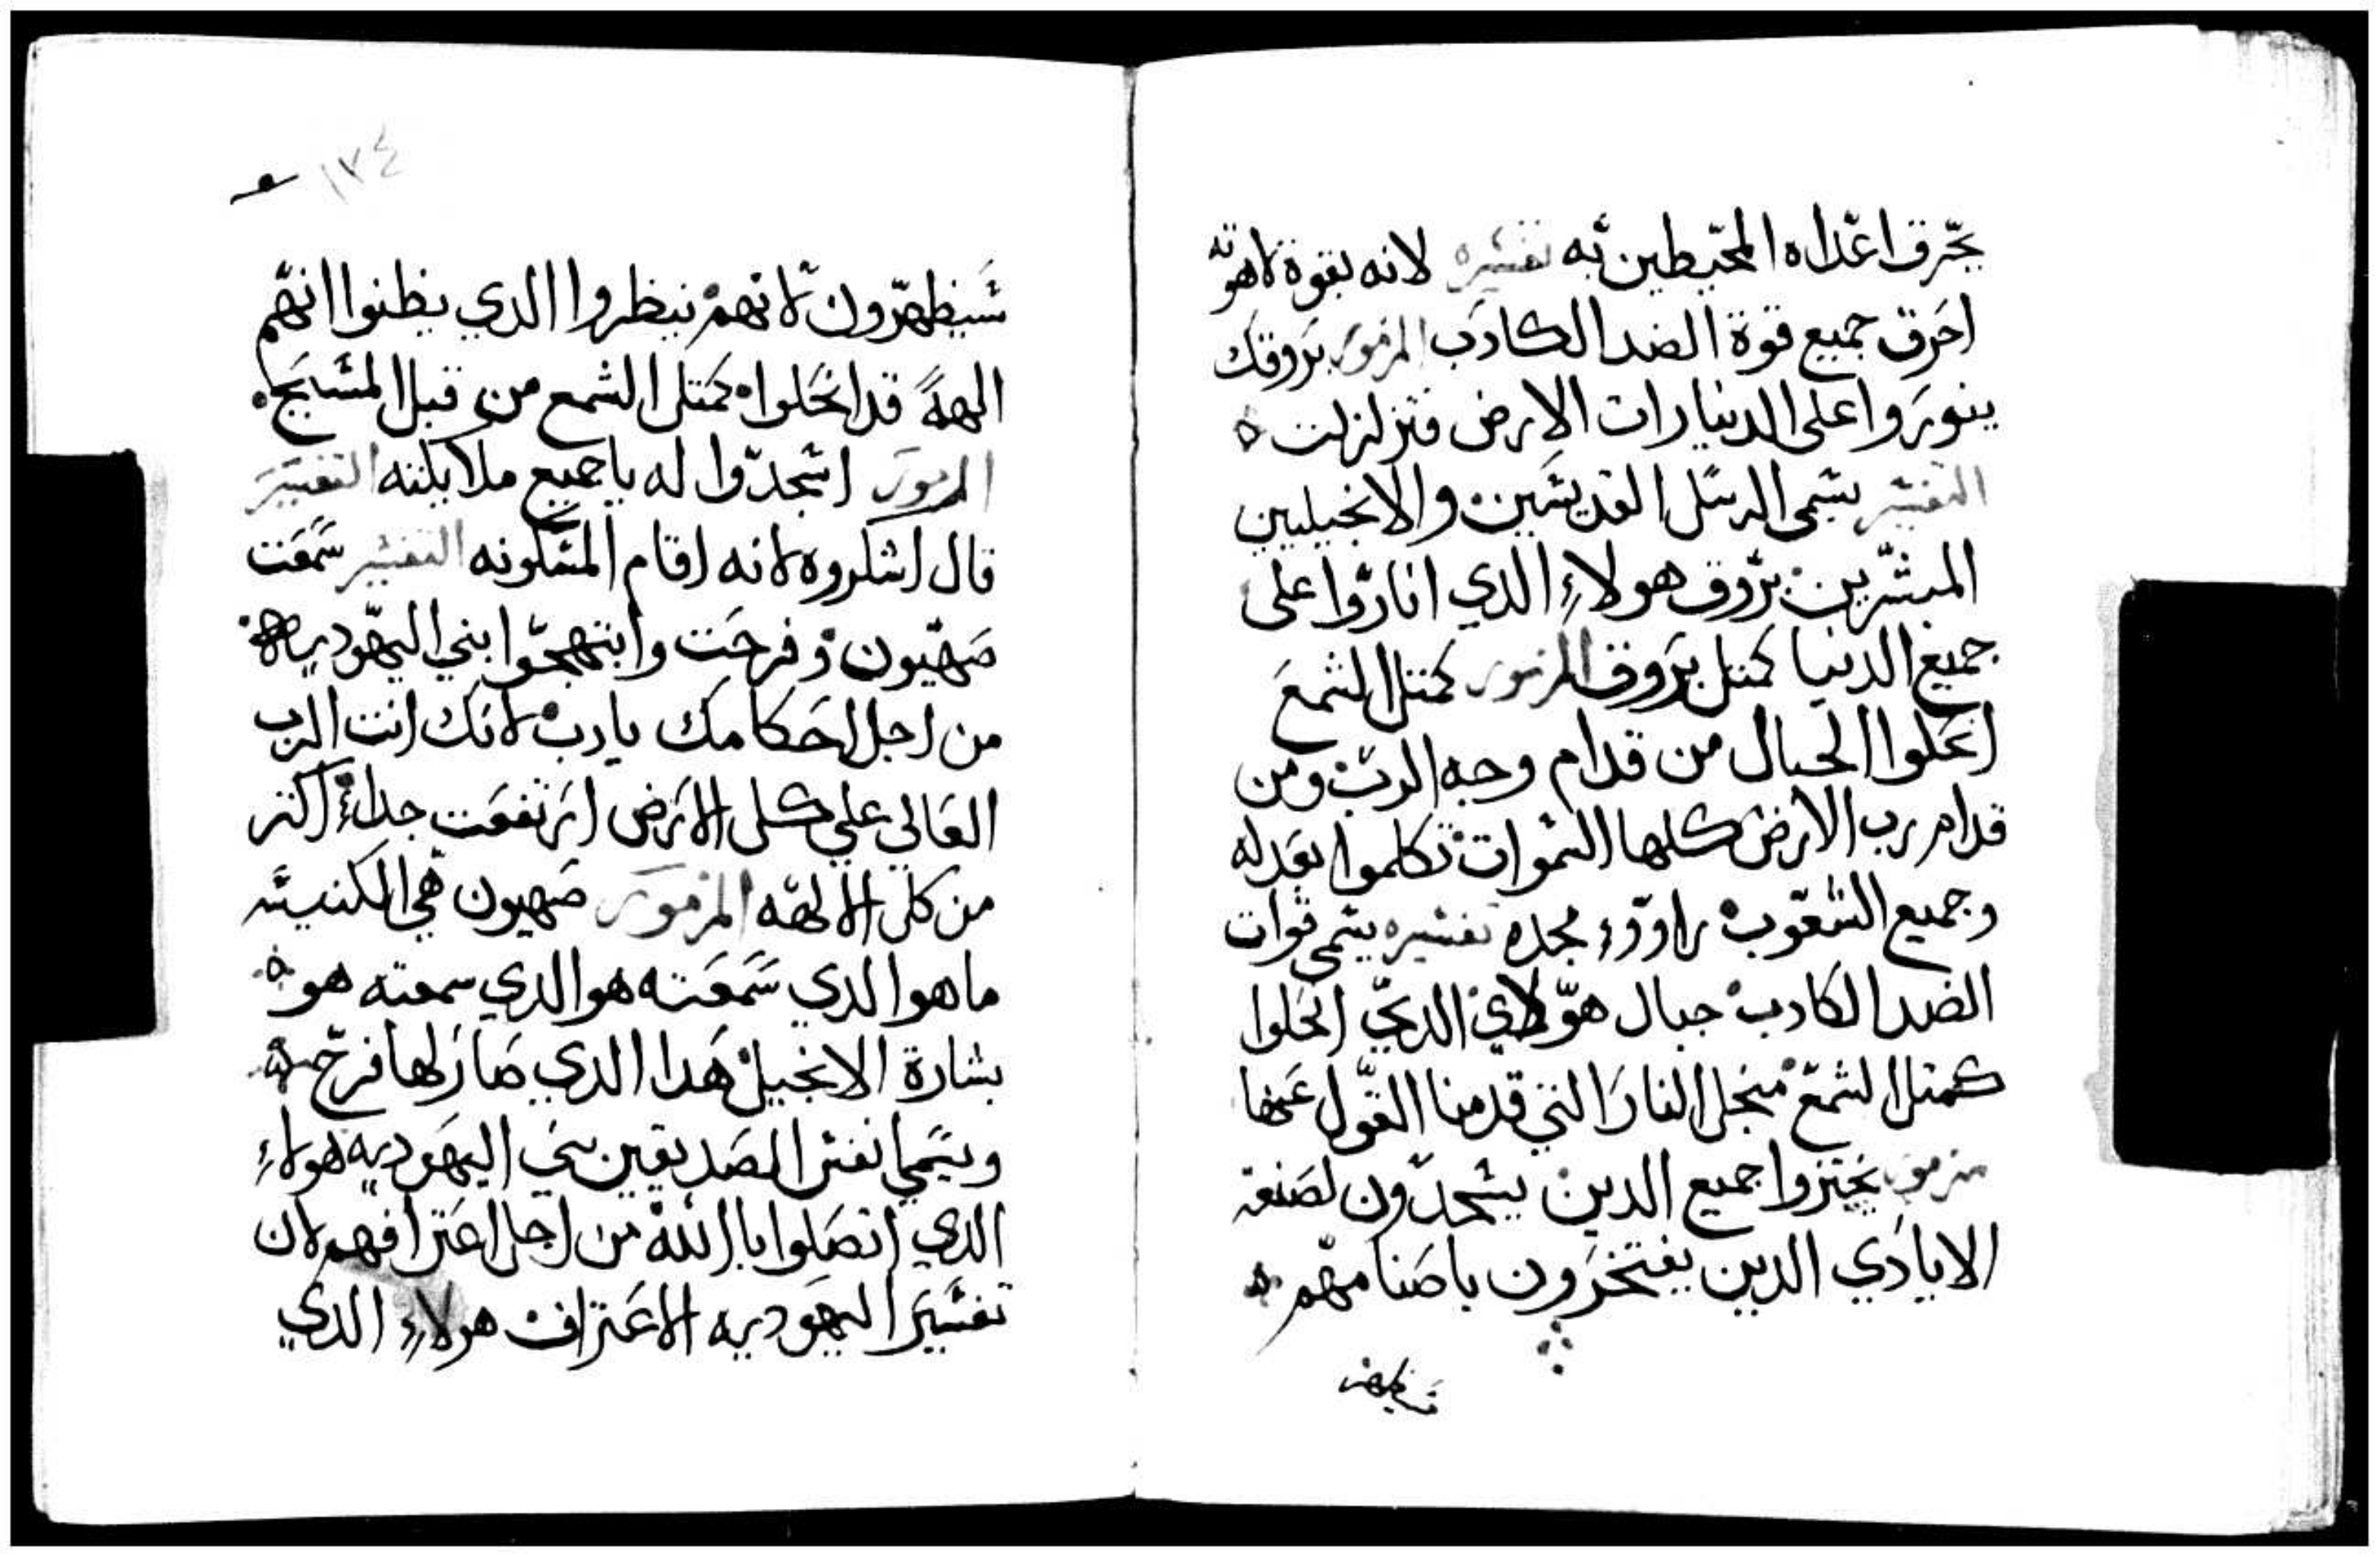 يحرق اعداه المحيطين به تفسيره لانه بقوة لاهوته
احرق جميع قوة الضد الكادب المزمور بروقك
ينوروا على الدنيا رات الارض فتزلزلت
التفسير يسمى الرسل القديسين والانجيليين
المبشرين بروق هولاء الدي اناروا على
جميع الدنيا كمتل بروق المزمور كمتل الشمع
انحلوا الجبال من قدام وجه الرب ومن
قدام رب الارض كلها السموات تكلموا بعدله
وجميع الشعوب راووا مجده تفسيره يسمى قوات
الضد الكادب جبال هولاي الدي انحلوا
كمتل الشمع منجل النار التي قدمنا القول عنها
مزمور يختزوا جميع الدين يسجدون لصنعة
الايادي الدين يفتخرون باصنامهم
١٧٤
سيظهرون لانهم ينظروا الدي يظنوا انهم
الهة قد انحلوا كمتل الشمع من قبل المسيح
المزمور اسجدوا له يا جميع ملايكته التفسير
قال اشكروه لانه اقام المسكونه التفسير سمعت
صهيون وفرحت وابتهجوا بني اليهوديه
من اجل احكامك يارب لانك انت الرب
العالي علي كل الارض ارتفعت جدا اكتر
من كل الالهه المزمور صهيون هي الكنيسه
ما هو الدي سمعته هو الدي سمعته هو
بشارة الانجيل هدا الدي صار لها فرح
ويسمي انفس الصديقين بني اليهوديه هولاء
الدي اتصلوا بالله من اجل اعترافهم لان
تفسير اليهوديه الاعتراف هولاء الدي